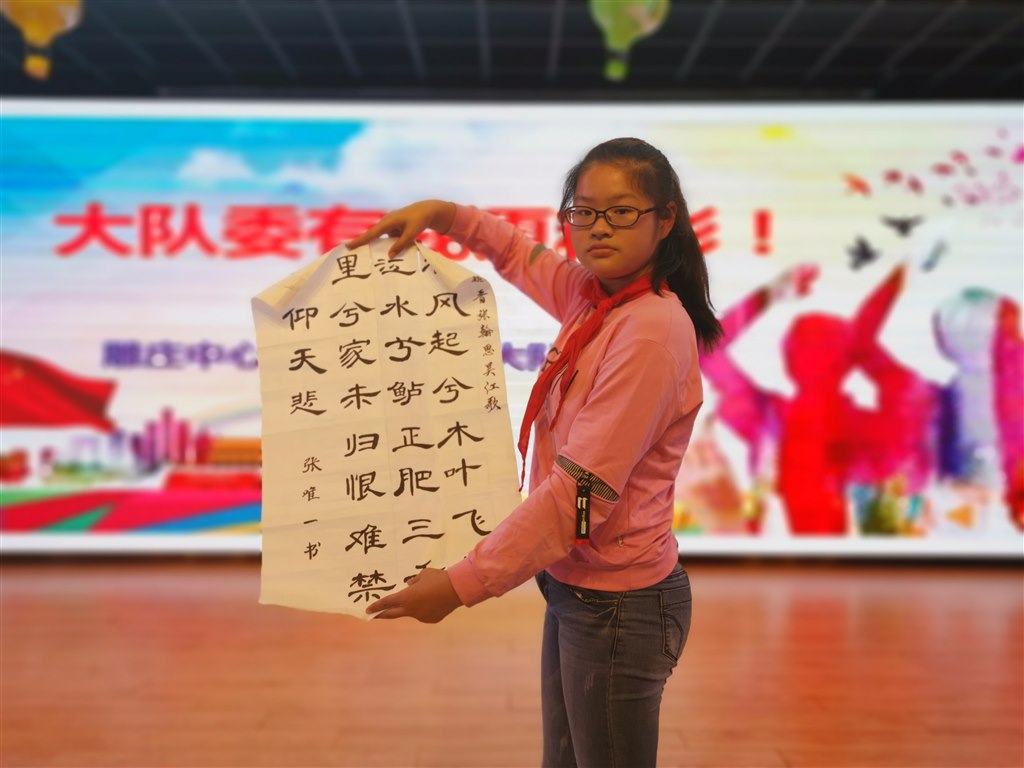 大队委有
！
雕庄中心
晋张翰思吴江歌
风起兮木叶飞
江水兮鲈正肥三
里兮家未归恨难禁
仰天悲
张唯一书